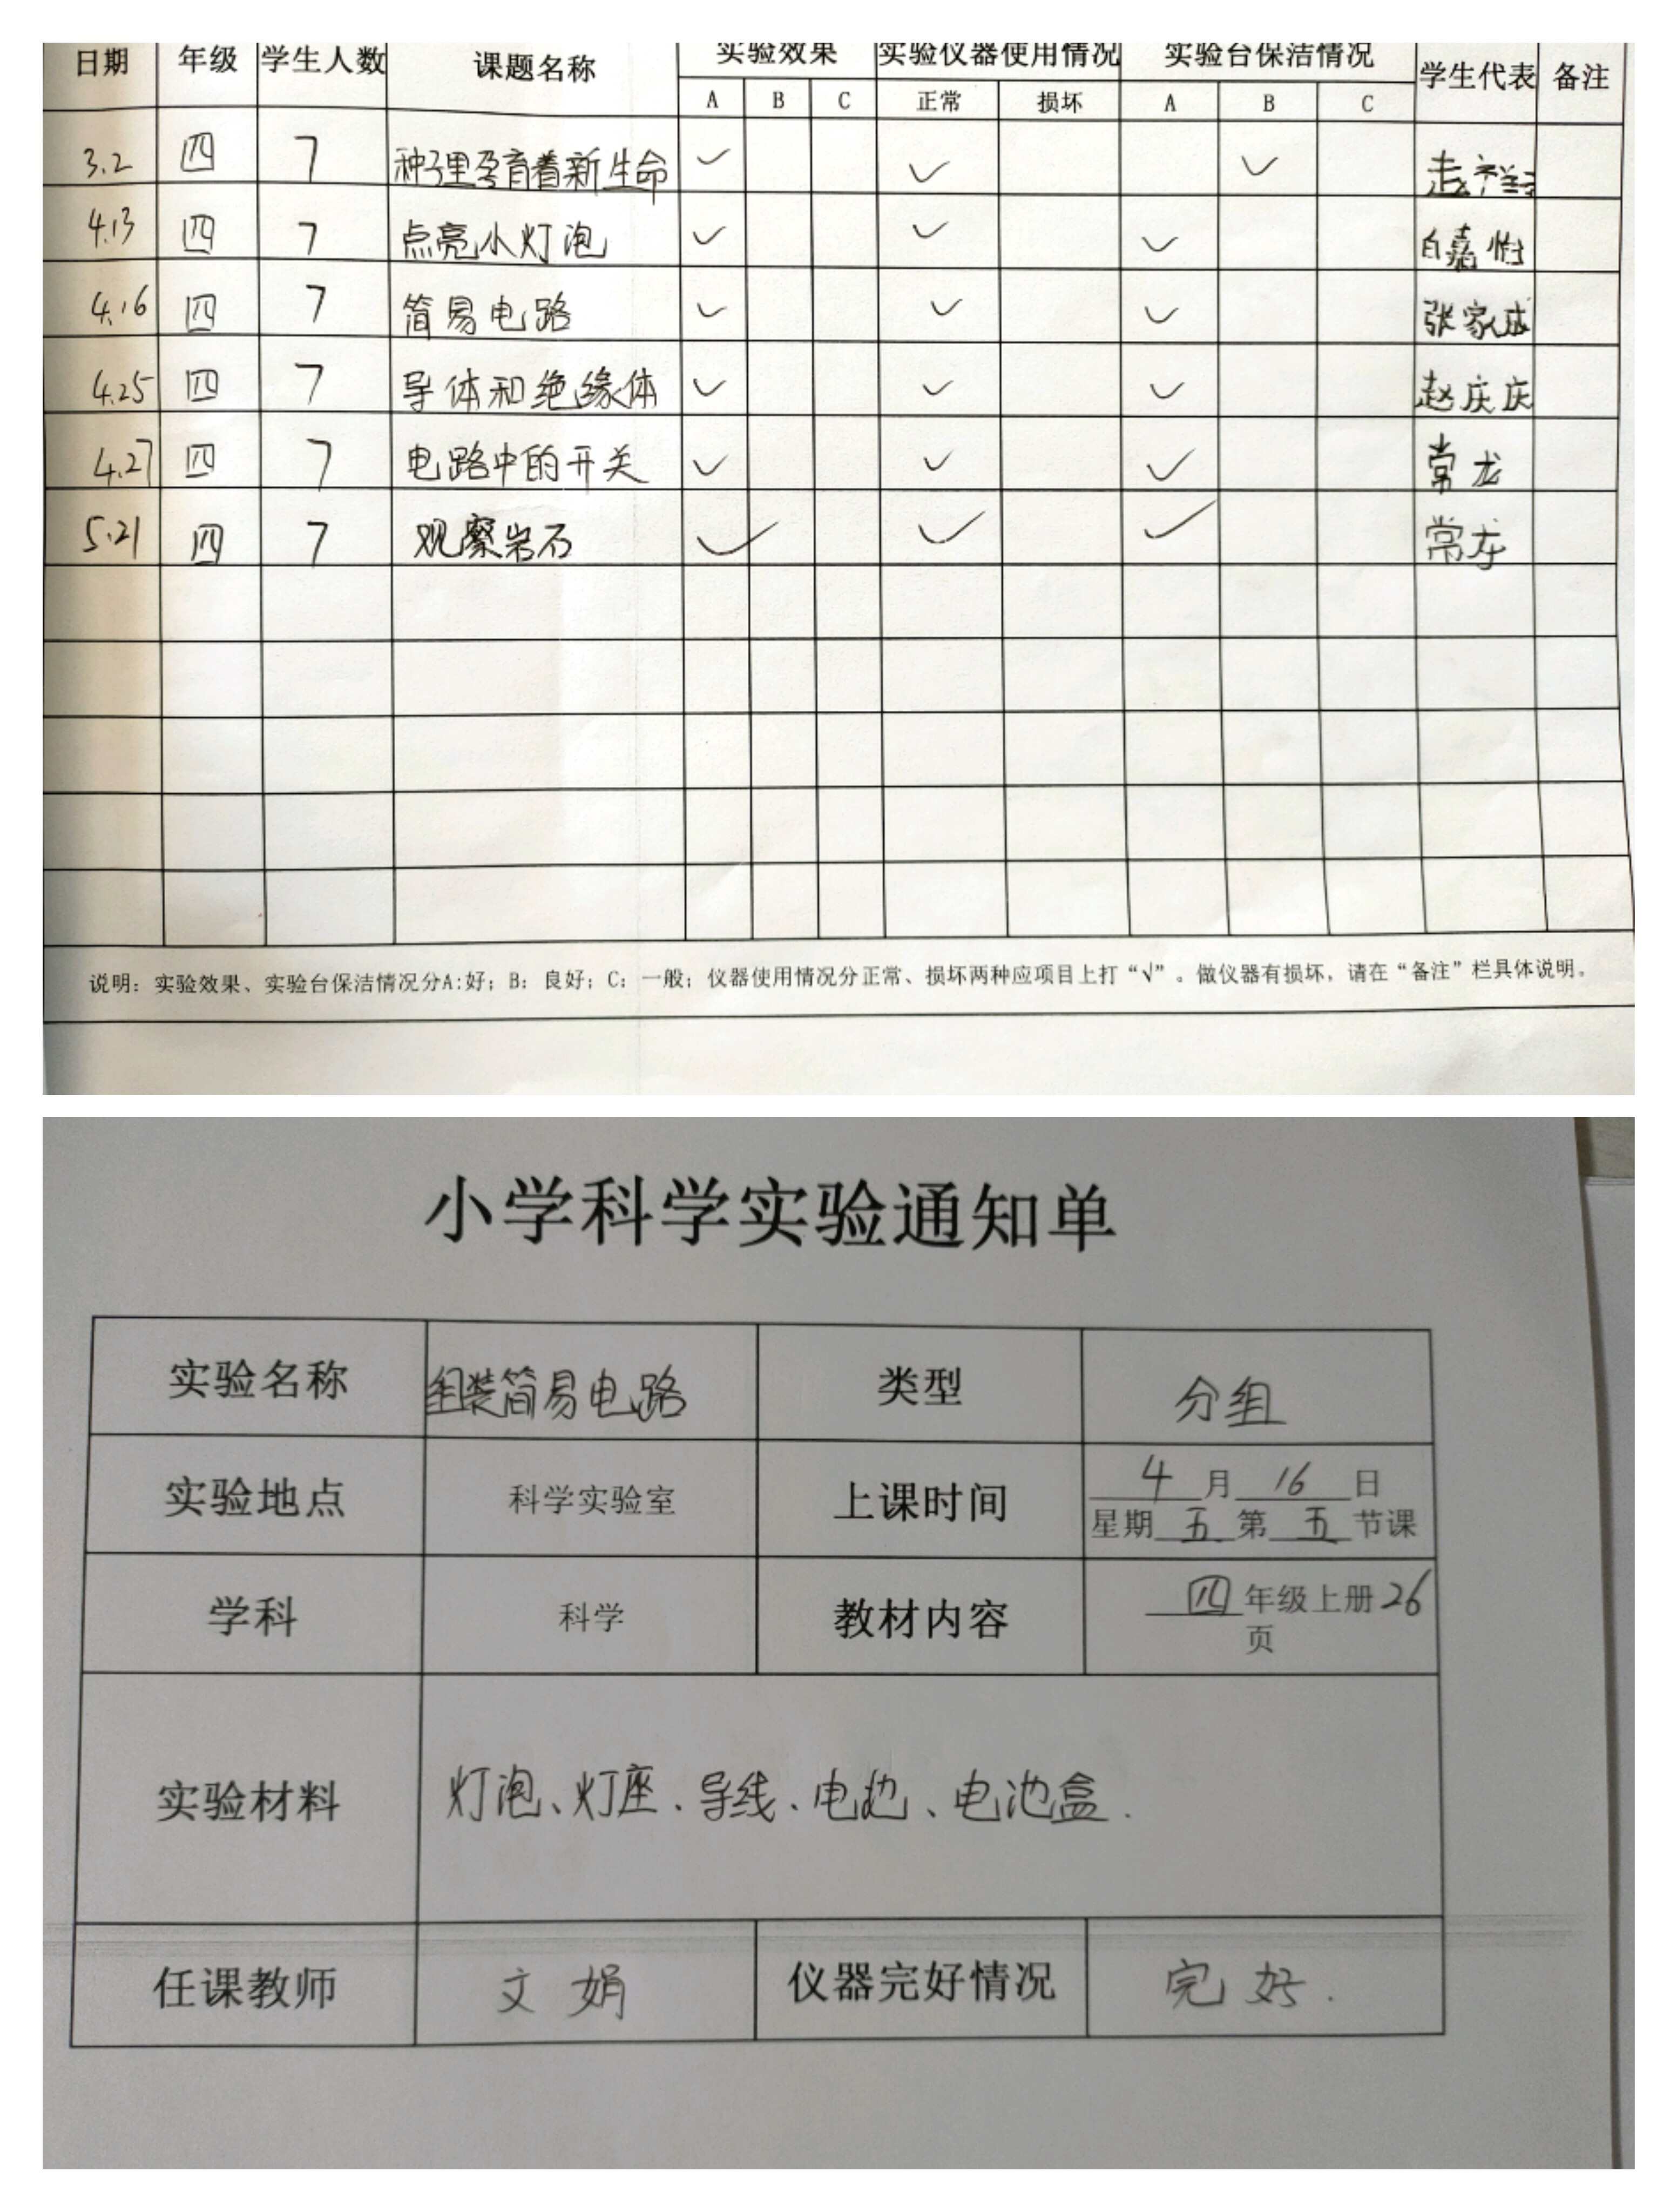 日期 年级 学生人数 课题名称 实验效果 实验仪器使用情况 实验台保洁情况 学生代表 备注
A B C 正常 损坏 A B C
3.2 四 7 种子里孕育着新生命 ✓ ✓ ✓
4.13 四 7 点亮小灯泡 ✓ ✓ ✓ 白嘉怡
4.16 四 7 简易电路 ✓ ✓ ✓ 张家成
4.25 四 7 导体和绝缘体 ✓ ✓ ✓ 赵庆庆
4.27 四 7 电路中的开关 ✓ ✓ ✓ 常龙
5.21 四 7 观察岩石 ✓ ✓ ✓ 常龙
说明：实验效果、实验台保洁情况分A:好；B：良好；C：一般；仪器使用情况分正常、损坏两种应项目上打“√”。做仪器有损坏，请在“备注”栏具体说明。
小学科学实验通知单
实验名称 组装简易电路 类型 分组
实验地点 科学实验室 上课时间 4月16日
星期五第五节课
学科 科学 教材内容 四年级上册26
页
实验材料 灯泡、灯座、导线、电池、电池盒.
任课教师 文娟 仪器完好情况 完好.